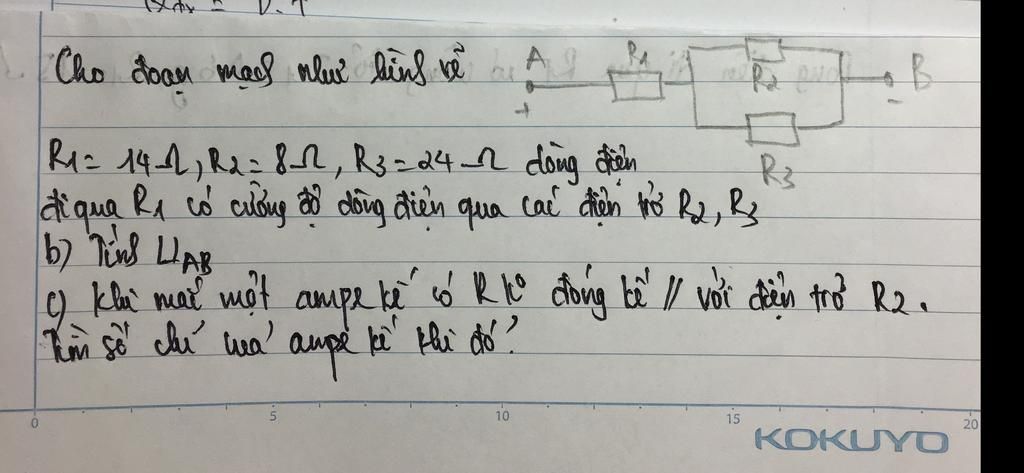 Cho đoạn mạch như hình vẽ
A
R1
R2
B
+
-
R3
R1 = 14Ω, R2 = 8Ω, R3 = 24Ω dòng điện
đi qua R1 có cường độ dòng điện qua các điện trở R2, R3
b) Tính UAB
c) Khi mắc một ampe kế có R k° đáng kể // với điện trở R2.
Tìm số chỉ của ampe kế khi đó?
0 5 10 15 20
KOKUYO